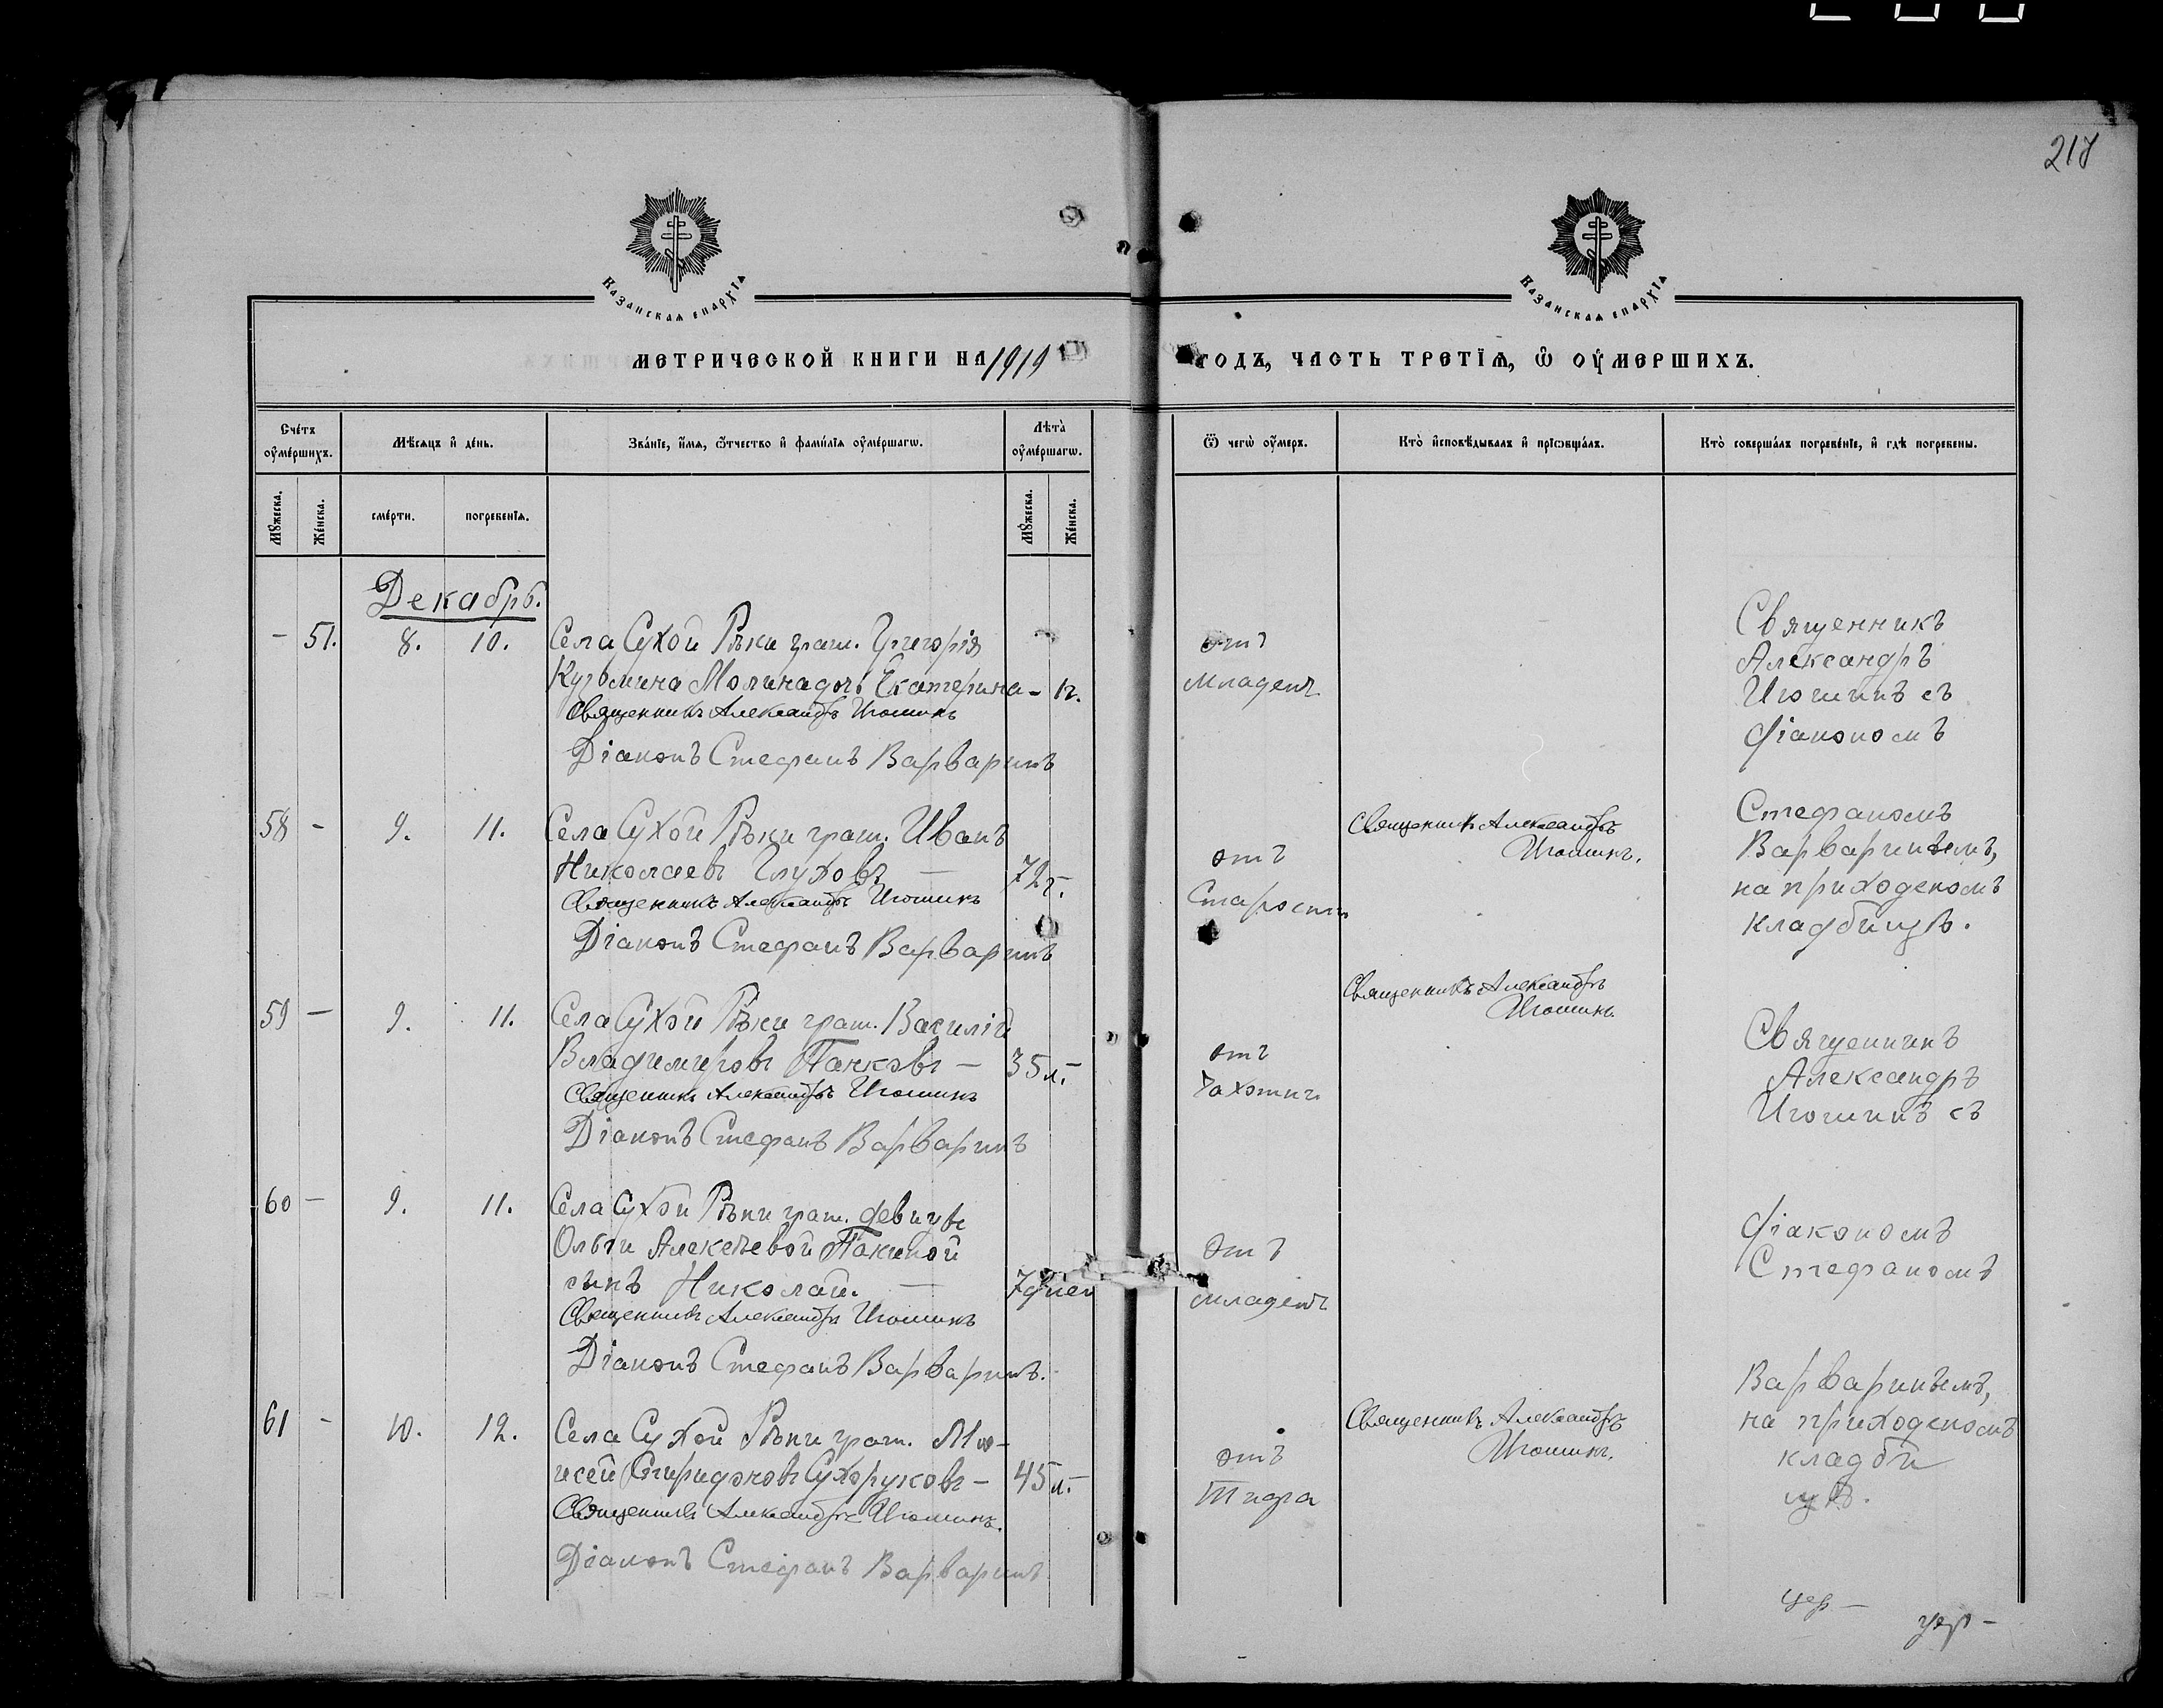 217
Казанская епархїя
Казанская епархїя
Метрической книги на 1919
годъ, часть третїѧ, ѡ оумершихъ.
Счéтъ оумéршихъ.
Мѣсяцъ и дéнь.
Звáнїе, и́мя, ѻ́тчество и фами́лїя оумéршагѡ.
Лѣтà оумéршагѡ.
Ѿ чегѡ̀ оу́меръ.
Ктò исповѣ́дывалъ и прїѡбщáлъ.
Ктò совершáлъ погребéнїе, и гдѣ̀ погребены.
Мꙋжеска.
Жéнска.
смéрти.
погребенїя.
Мꙋжеска.
Жéнска.
Декабрь.
- 51. 8. 10. Села Сухой Рѣки граж. Григорія
Кузьмина Молина дочь Екатерина - 1г.
Священникъ Александръ Игошинъ
Діаконъ Стефанъ Варваринъ
отъ
младенч.
Священникъ
Александръ
Игошинъ съ
діакономъ
58 - 9. 11. Села Сухой Рѣки граж. Иванъ
Николаевъ Глуховъ — 72г. -
Священникъ Александръ Игошинъ
Діаконъ Стефанъ Варваринъ
отъ
Старости
Священникъ Александръ
Игошинъ.
Стефаномъ
Варваринымъ,
на приходскомъ
кладбищѣ.
59 — 9. 11. Села Сухой Рѣки граж. Василій
Владимировъ Панковъ — 35 л. -
Священникъ Александръ Игошинъ
Діаконъ Стефанъ Варваринъ
отъ
чахотки
Священникъ Александръ
Игошинъ.
Священникъ
Александръ
Игошинъ съ
60 — 9. 11. Села Сухой Рѣки граж. девицы
Ольги Алексѣевой Пакиной
сынъ Николай. — 7 дней
Священникъ Александръ Игошинъ
Діаконъ Стефанъ Варваринъ.
Отъ
младенч
діакономъ
Стефаномъ
61 - 10. 12. Села Сухой Рѣки граж. Мо-
исей Спиридоновъ Сухоруковъ — 45 л. -
Священникъ Александръ Игошинъ.
Діаконъ Стефанъ Варваринъ
отъ
Тифа
Священникъ Александръ
Игошинъ.
Варваринымъ,
на приходскомъ
кладби
щѣ.